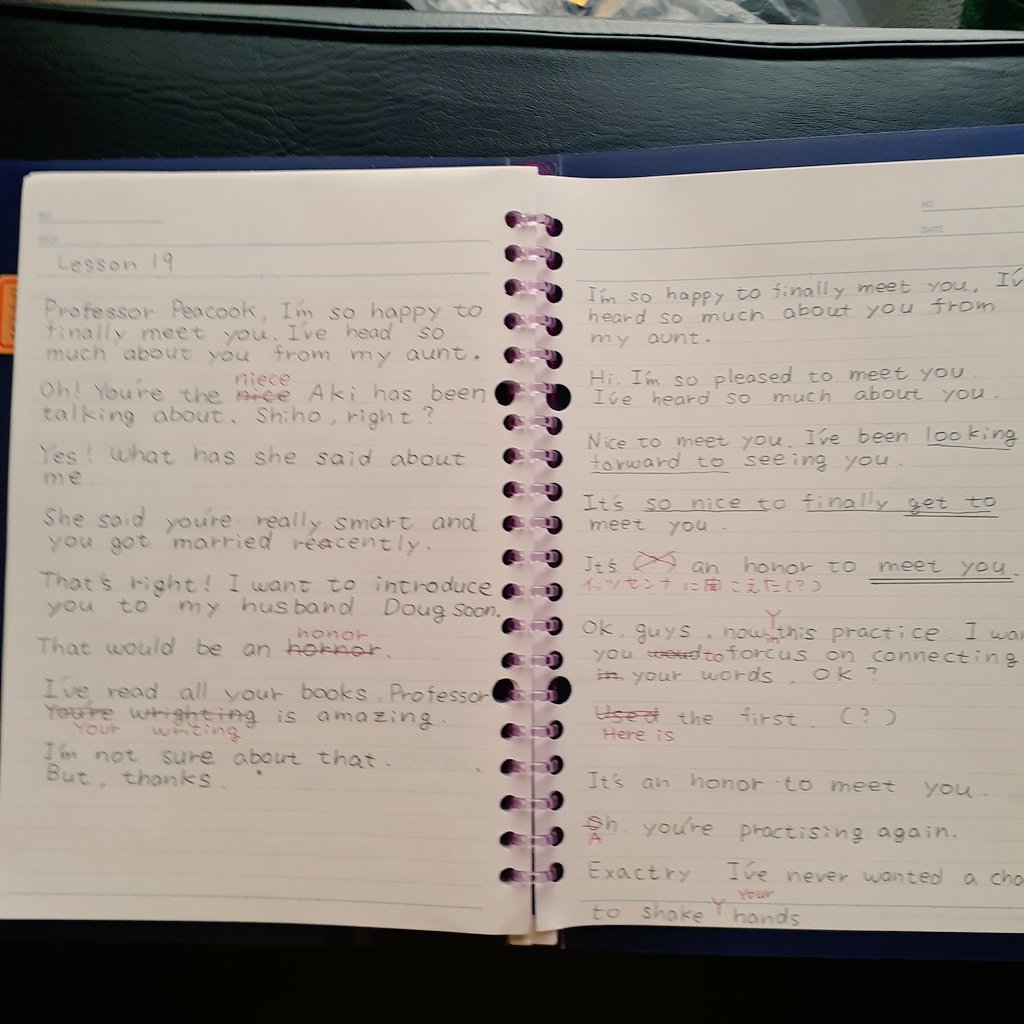 NO.
DATE
Lesson 19
Professor Peacook, I'm so happy to
finally meet you. I've head so
much about you from my aunt.
niece
Oh! You're the nice Aki has been
talking about. Shiho, right?
Yes! What has she said about
me
She said you're really smart and
you got married reacently.
That's right! I want to introduce
you to my husband Doug soon.
honor
That would be an hornor.
I've read all your books, Professor
You're wrighting is amazing.
Your writing
I'm not sure about that.
But, thanks.
NO.
DATE
I'm so happy to finally meet you, I'v
heard so much about you from
my aunt.
Hi. I'm so pleased to meet you.
I've heard so much about you.
Nice to meet you. I've been looking
forward to seeing you.
It's so nice to finally get to
meet you.
It's an honor to meet you.
イッツセンナに聞こえた(?)
OK, guys, now in this practice I wan
you to forcus on connecting
in your words, OK?
Used the first. (?)
Here is
It's an honor to meet you.
Oh you're practising again.
A
Exactry I've never wanted a cha
your
to shake hands